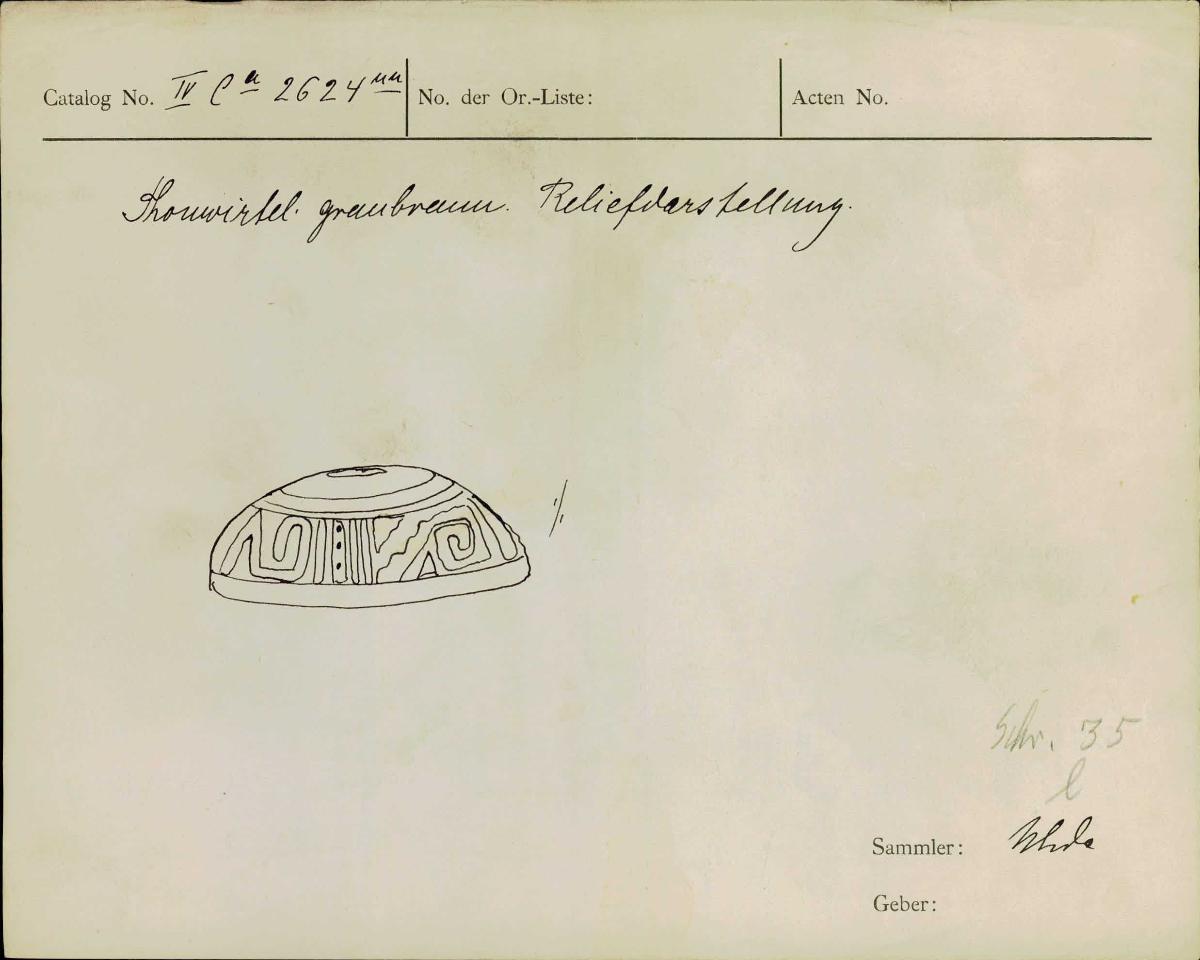 Catalog No. IV Ca 2624 uu No. der Or.-Liste: Acten No.
Thonwirtel. graubraun. Reliefdarstellung.
1/1
Schr. 35
l
Sammler: Uhde
Geber: